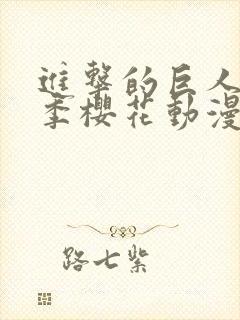 進擊的巨人
季櫻花動漫
路七紫